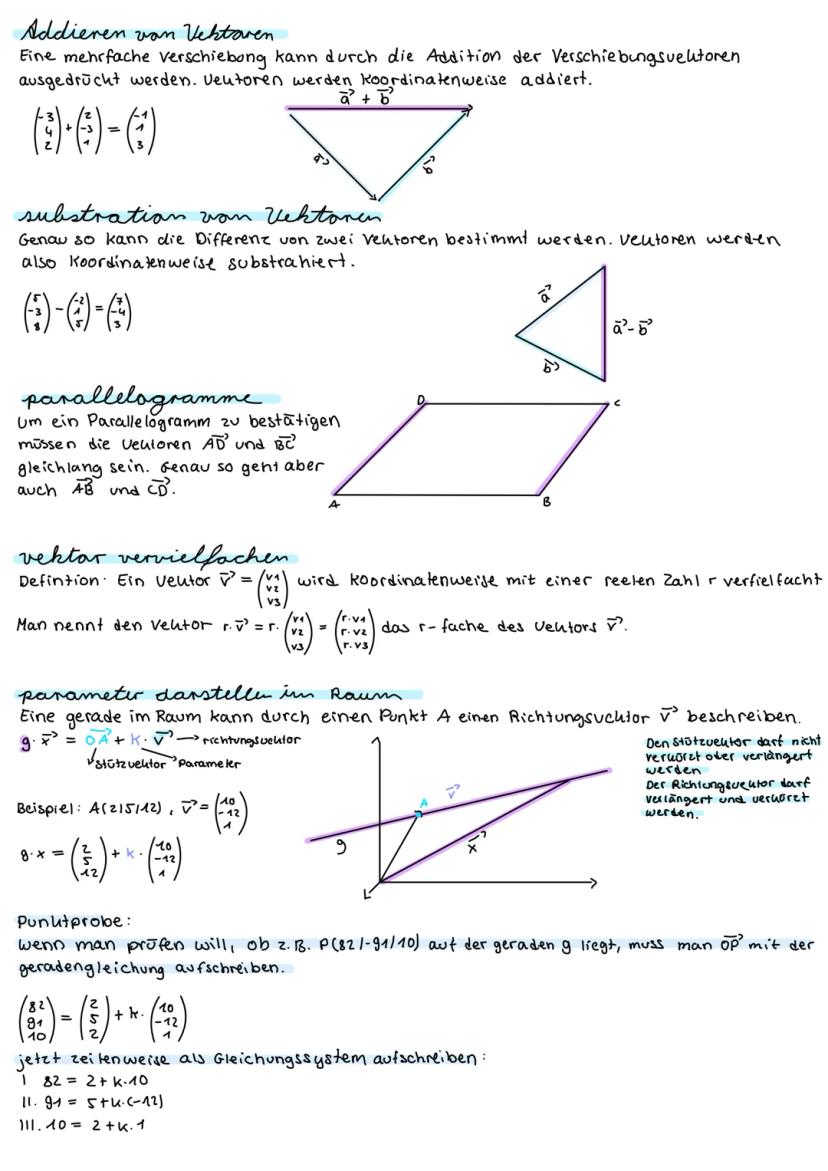 Addieren von Vektoren
Eine mehrfache Verschiebung kann durch die Addition der Verschiebungsvektoren
ausgedrückt werden. Vektoren werden Koordinatenweise addiert.
a⃗ + b⃗
(-3 4 2) + (2 -3 1) = (-1 1 3)
a⃗
b⃗
substration von Vektoren
Genau so kann die Differenz von zwei Vektoren bestimmt werden. Vektoren werden
also Koordinatenweise substrahiert.
(5 -3 8) - (-2 1 5) = (7 -4 3)
a⃗
a⃗-b⃗
b⃗
parallelogramme
Um ein Parallelogramm zu bestätigen
müssen die Vektoren AD⃗ und BC⃗
gleichlang sein. Genau so geht aber
auch AB⃗ und CD⃗.
D
C
A
B
vektor vervielfachen
Defintion: Ein Vektor v⃗ = (v1 v2 v3) wird Koordinatenweise mit einer reelen Zahl r verfielfacht
Man nennt den Vektor r·v⃗ = r·(v1 v2 v3) = (r·v1 r·v2 r·v3) das r-fache des Vektors v⃗.
parameter darstellen im Raum
Eine gerade im Raum kann durch einen Punkt A einen Richtungsvektor v⃗ beschreiben.
g: x⃗ = OA⃗ + k · v⃗ → richtungsvektor
Stützvektor Parameter
Den Stützvektor darf nicht
verkürzt oder verlängert
werden
Der Richtungsvektor darf
verlängert und verkürzt
werden.
Beispiel: A(2|5|12), v⃗ = (10 -12 1)
g: x = (2 5 12) + k · (10 -12 1)
A
v⃗
g
x⃗
Punktprobe:
wenn man prüfen will, ob z.B. P(82/-91/10) auf der geraden g liegt, muss man OP⃗ mit der
geradengleichung aufschreiben.
(82 91 10) = (2 5 2) + k · (10 -12 1)
jetzt zeilenweise als Gleichungssystem aufschreiben:
I 82 = 2 + k·10
II. 91 = 5+k·(-12)
III. 10 = 2 + k·1